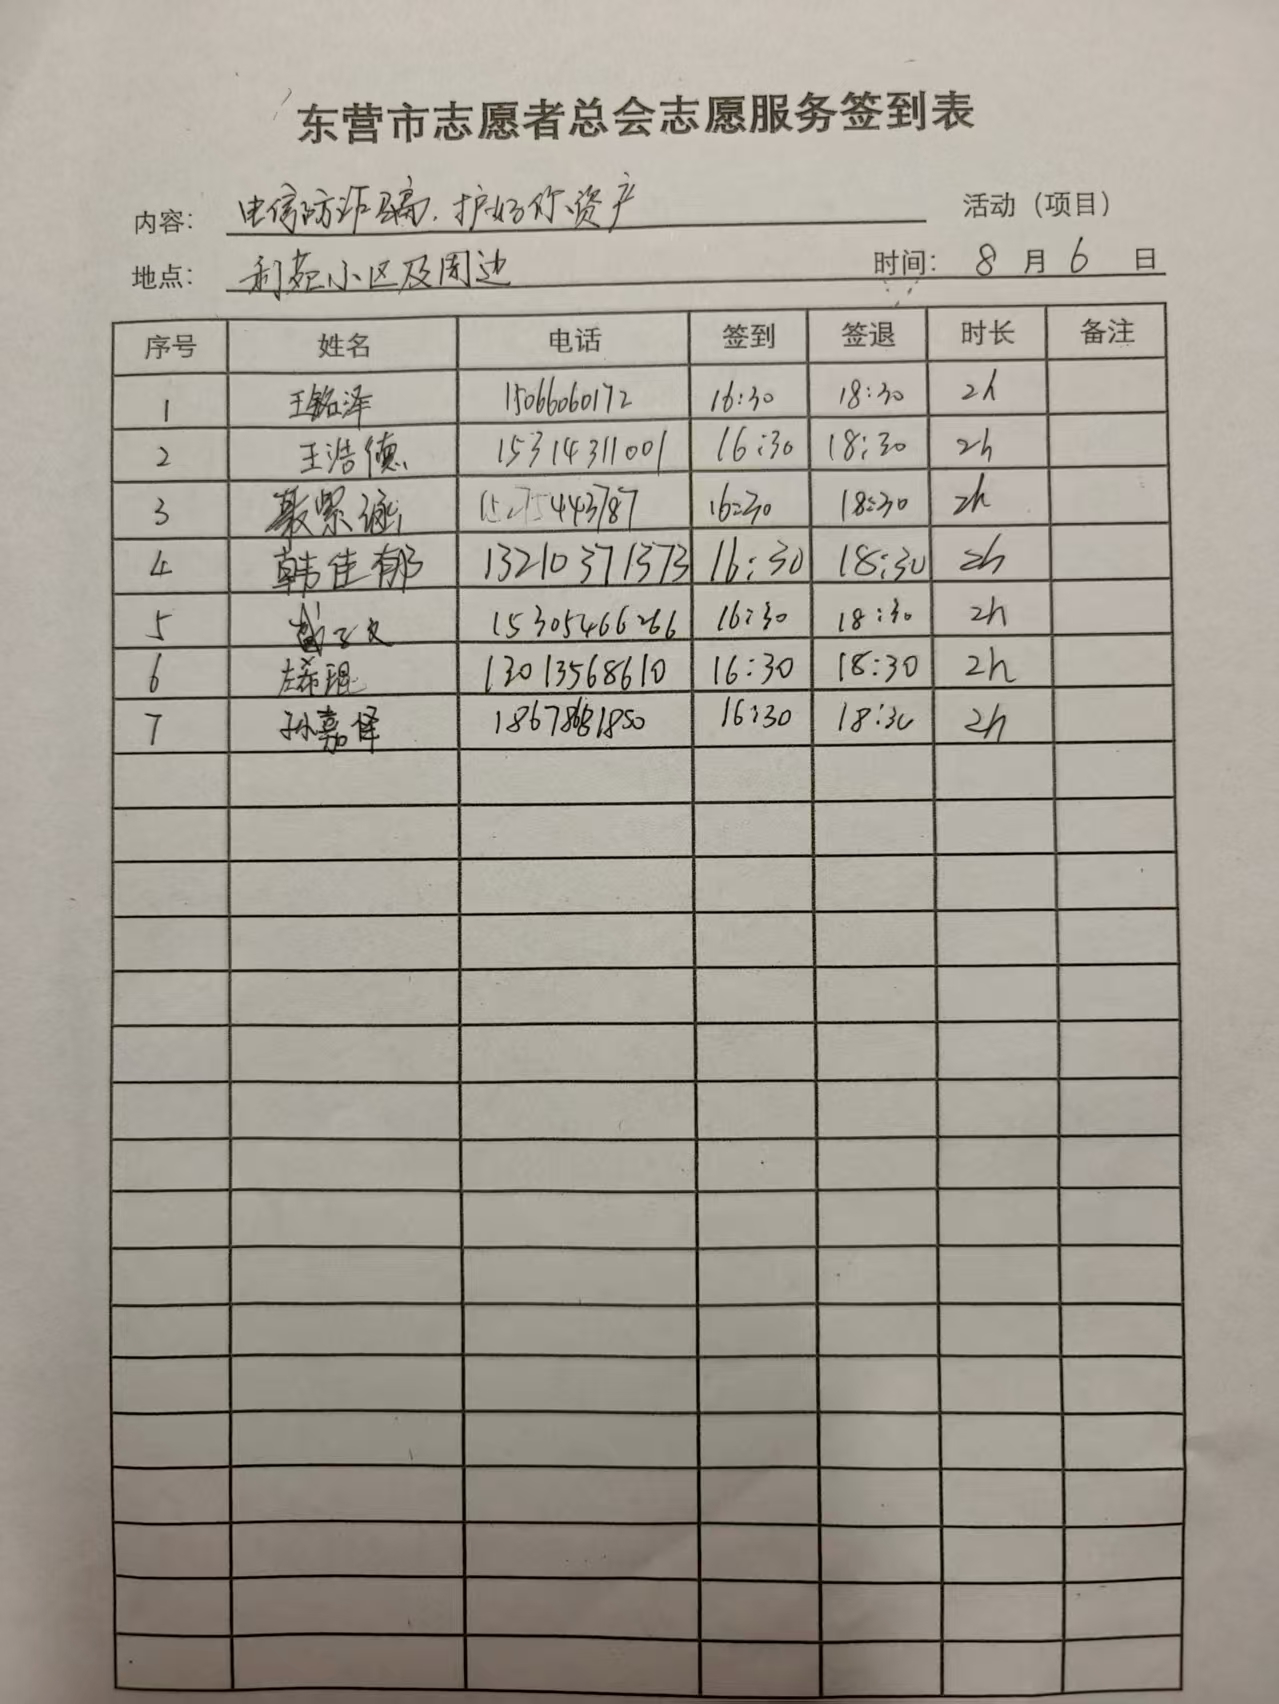 东营市志愿者总会志愿服务签到表
内容: 电信防诈骗.护好你资产 活动（项目）
地点: 利苑小区及周边 时间: 8 月 6 日
序号 姓名 电话 签到 签退 时长 备注
1 王铭泽 15066060172 16:30 18:30 2h
2 王浩德 15314311001 16:30 18:30 2h
3 聂紧涵 15275443787 16:30 18:30 2h
4 韩佳郁 13210371373 16:30 18:30 2h
5 15305466266 16:30 18:30 2h
6 左希琨 13013568610 16:30 18:30 2h
7 孙嘉怿 16:30 18:30 2h